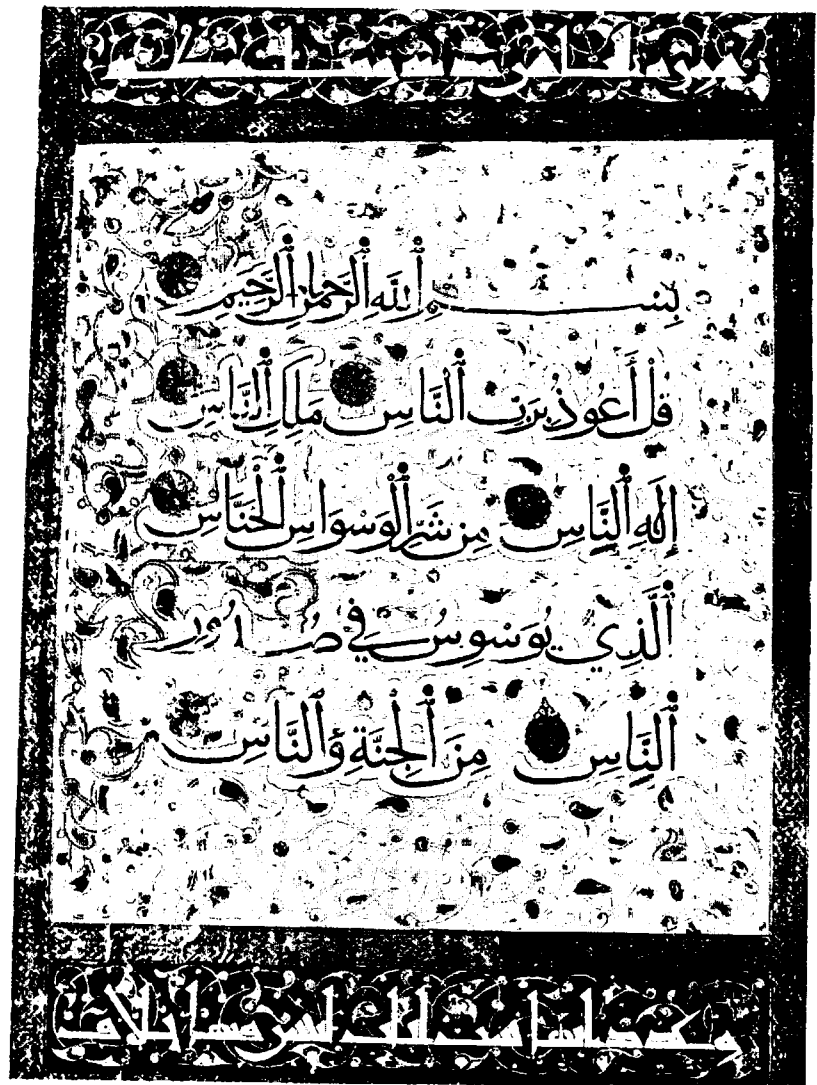 بِسْمِ ٱللَّهِ ٱلرَّحْمٰنِ ٱلرَّحِيمِ
قُلْ أَعُوذُ بِرَبِّ ٱلنَّاسِ مَلِكِ ٱلنَّاسِ
إِلَهِ ٱلنَّاسِ مِن شَرِّ ٱلْوَسْوَاسِ ٱلْخَنَّاسِ
ٱلَّذِي يُوَسْوِسُ فِي صُدُورِ
ٱلنَّاسِ مِنَ ٱلْجِنَّةِ وَٱلنَّاسِ